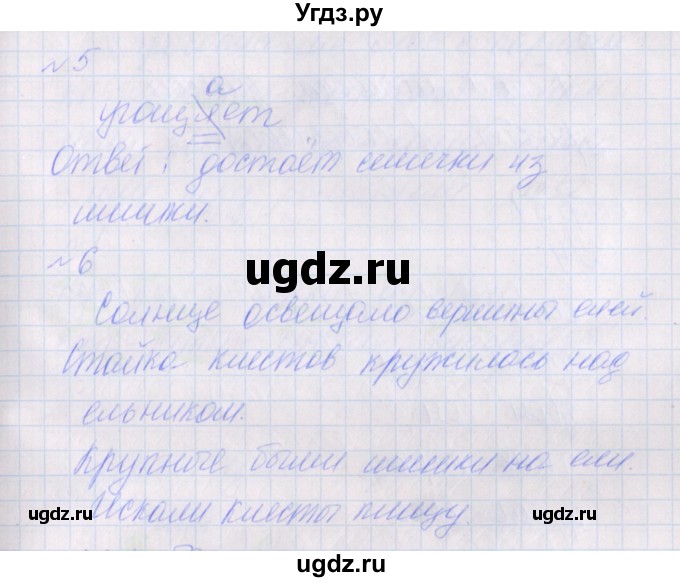 Угдз.ру
№5
а
угощяет
Ответ: достаёт семечки из
шишки.
№6
ugdz.ru
Солнце освещало вершины елей.
Стайка клестов кружилась над
ельником.
Крупные были шишки на ели.
Искали клесты пищу.
ugdz.ru
ugdz.ru
ugdz.ru